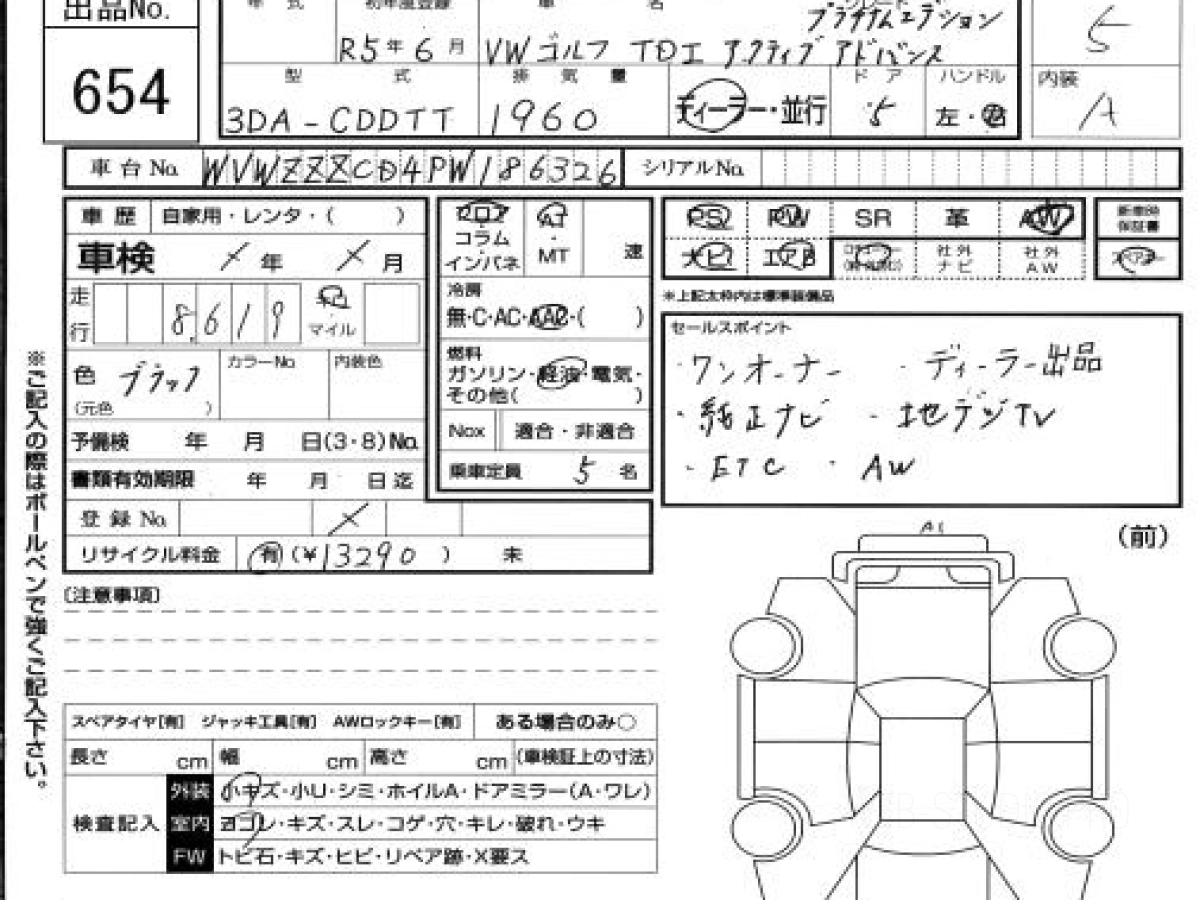 出品No.
654
年 式 初年度登録 車 名 グレード
R5年6月 VW ゴルフ TDI アクティブ アドバンス
プラチナムエデション
型 式 排 気 量 ドア ハンドル
3DA-CDDTT 1960 ディーラー・並行 5 左・右
5
内装
A
車台No. WVWZZZCD4PW186326 シリアルNo.
車歴 自家用・レンタ・( )
車検 年 月
走行 8,619 km マイル
色 ブラック カラーNo. 内装色
(元色 )
予備検 年 月 日(3・8)No.
書類有効期限 年 月 日迄
登録No.
リサイクル料金 有 (¥13290 ) 未
フロア AT 速
コラム ・
インパネ MT
冷房
無・C・AC・AAC・( )
燃料
ガソリン・軽油・電気・
その他( )
Nox 適合・非適合
乗車定員 5 名
PS PW SR 革 AW 新車時保証書
ナビ エアB 社外ナビ 社外AW スペアキー
※上記太枠内は標準装備品
セールスポイント
・ワンオーナー ・ディーラー出品
・純正ナビ ・地デジTV
・ETC ・AW
※ご記入の際はボールペンで強くご記入下さい。
〔注意事項〕
A1
(前)
スペアタイヤ[有] ジャッキ工具[有] AWロックキー[有] ある場合のみ○
長さ cm 幅 cm 高さ cm (車検証上の寸法)
検査記入
外装 小キズ・小U・シミ・ホイルA・ドアミラー(A・ワレ)
室内 ヨゴレ・キズ・スレ・コゲ・穴・キレ・破れ・ウキ
FW トビ石・キズ・ヒビ・リペア跡・X要ス